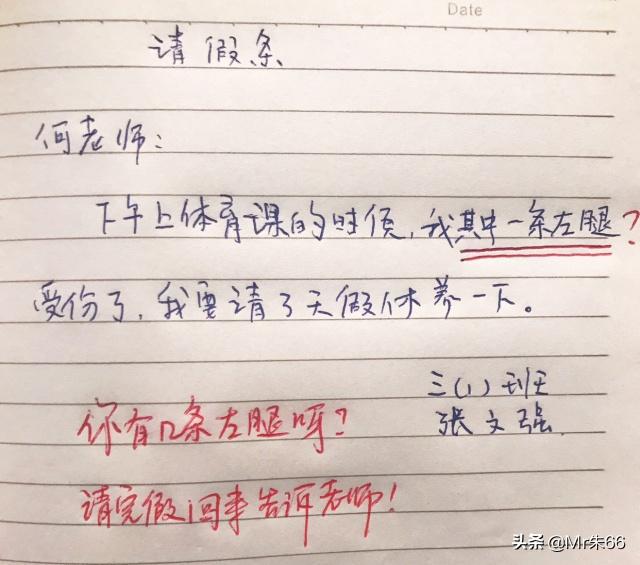 Date
请假条
何老师：
下午上体育课的时候，我其中一条左腿？
受伤了，我要请3天假休养一下。
三(1)班
张文强
你有几条左腿呀？
请完假回来告诉老师！
头条 @Mr朱66